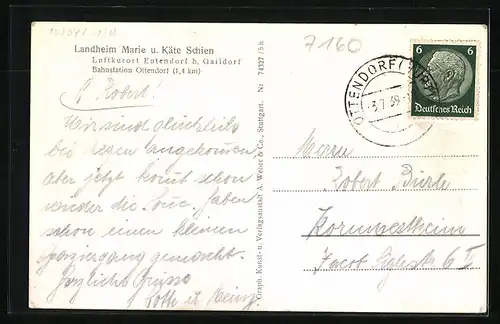 Landheim Marie u. Käte Schien
Luftkurort Eutendorf b. Gaildorf
Bahnstation Ottendorf (1,4 km)
7160
L. Robert!
Wir sind glücklich
bei Regen angekommen,
aber jetzt kommt schon
wieder die Sonne, haben
schon einen kleinen
Spaziergang gemacht.
Herzliche Grüsse
Lotte u. Heinz.
Graph. Kunst- u. Verlagsanstalt A. Weber & Co., Stuttgart. Nr. 74327/5 h
OTTENDORF (WÜRTT
6 6
Deutsches Reich
Herrn
Robert
Kornwestheim
Jacob Siglestr. 6